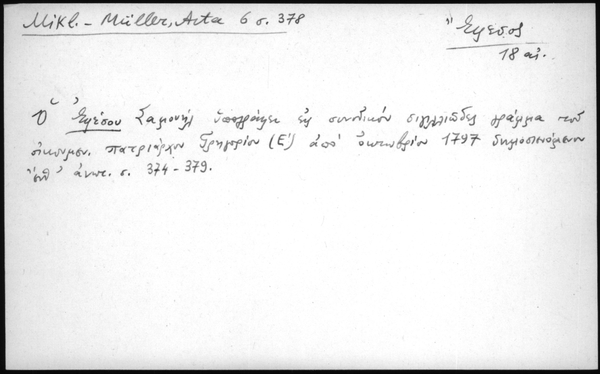 Mikl.- Müller, Acta 6 σ. 378
Ἔφεσος
18 αἰ.
Ὁ Ἐφέσου Σαμουὴλ ὑπογράφει εἰς συνοδικὸν σιγιλλιῶδες γράμμα τοῦ
οἰκουμεν. πατριάρχου Γρηγορίου (Ε΄) ἀπὸ ὀκτωβρίου 1797 δημοσιευόμενον
ἀνωτ. σ. 374-379.